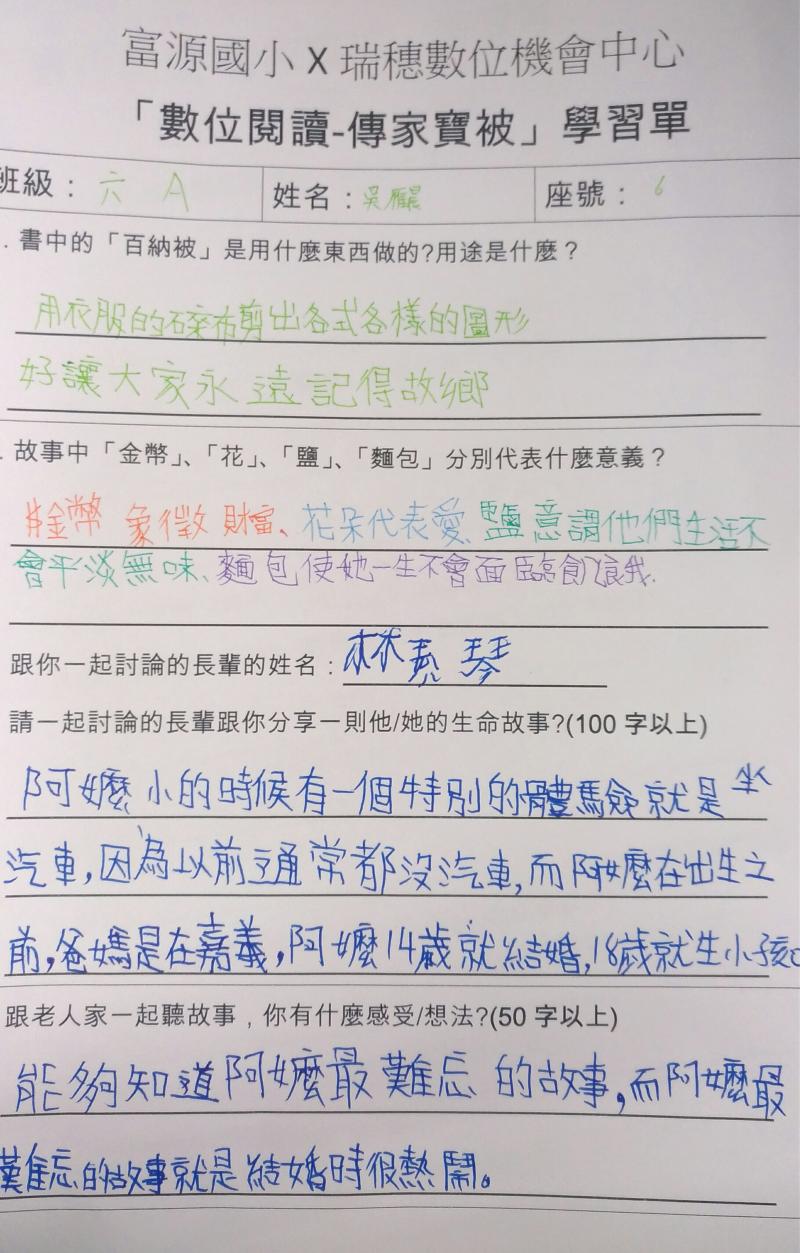 富源國小 X 瑞穗數位機會中心
「數位閱讀-傳家寶被」學習單
班級：六 A 姓名：吳 座號：6
. 書中的「百納被」是用什麼東西做的?用途是什麼？
用衣服的碎布剪出各式各樣的圖形
好讓大家永遠記得故鄉
. 故事中「金幣」、「花」、「鹽」、「麵包」分別代表什麼意義？
金幣 象徵財富、花朵代表愛、鹽意謂他們生活不
會平淡無味、麵包使她一生不會面臨飢餓.
跟你一起討論的長輩的姓名：林 琴
請一起討論的長輩跟你分享一則他/她的生命故事?(100 字以上)
阿嬤小的時候有一個特別的體驗就是坐
汽車,因為以前通常都沒汽車,而阿嬤在出生之
前,爸媽是在嘉義,阿嬤14歲就結婚,18歲就生小孩。
跟老人家一起聽故事，你有什麼感受/想法?(50 字以上)
能夠知道阿嬤最難忘的故事,而阿嬤最
難忘的故事就是結婚時很熱鬧。